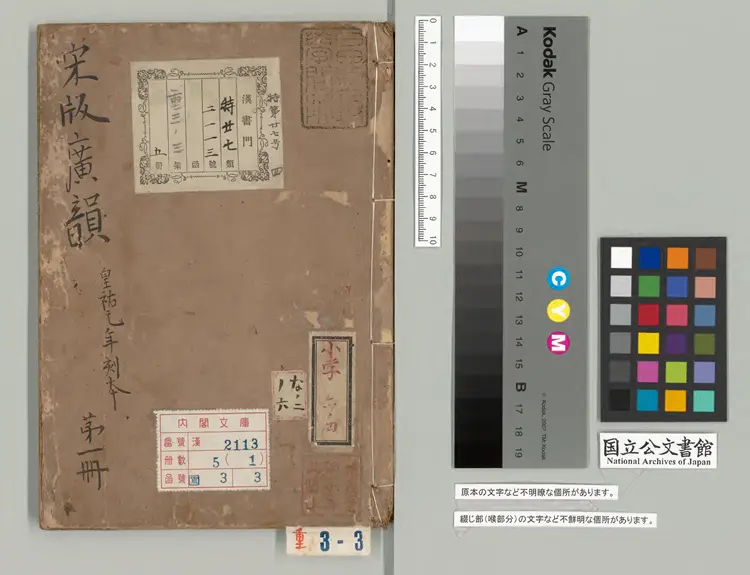 宋版廣韻
皇祐元年刻本
第一冊
特第廿七号
四
漢書門
特廿七
類
二一一三
號
函
重三、三
架
五
冊
小学
な、二
ノ六
内閣文庫
番號 漢 2113
冊數 5 (1)
函號 3 3
重 3-3
0 1 2 3 4 5 6 7 8 9 10
Kodak Gray Scale
A 1 2 3 4 5 6 M 8 9 10 11 12 13 14 15 B 17 18 19
C Y M
© Kodak, 2007 TM: Kodak
国立公文書館
National Archives of Japan
原本の文字など不明瞭な個所があります。
綴じ部(喉部分)の文字など不鮮明な個所があります。